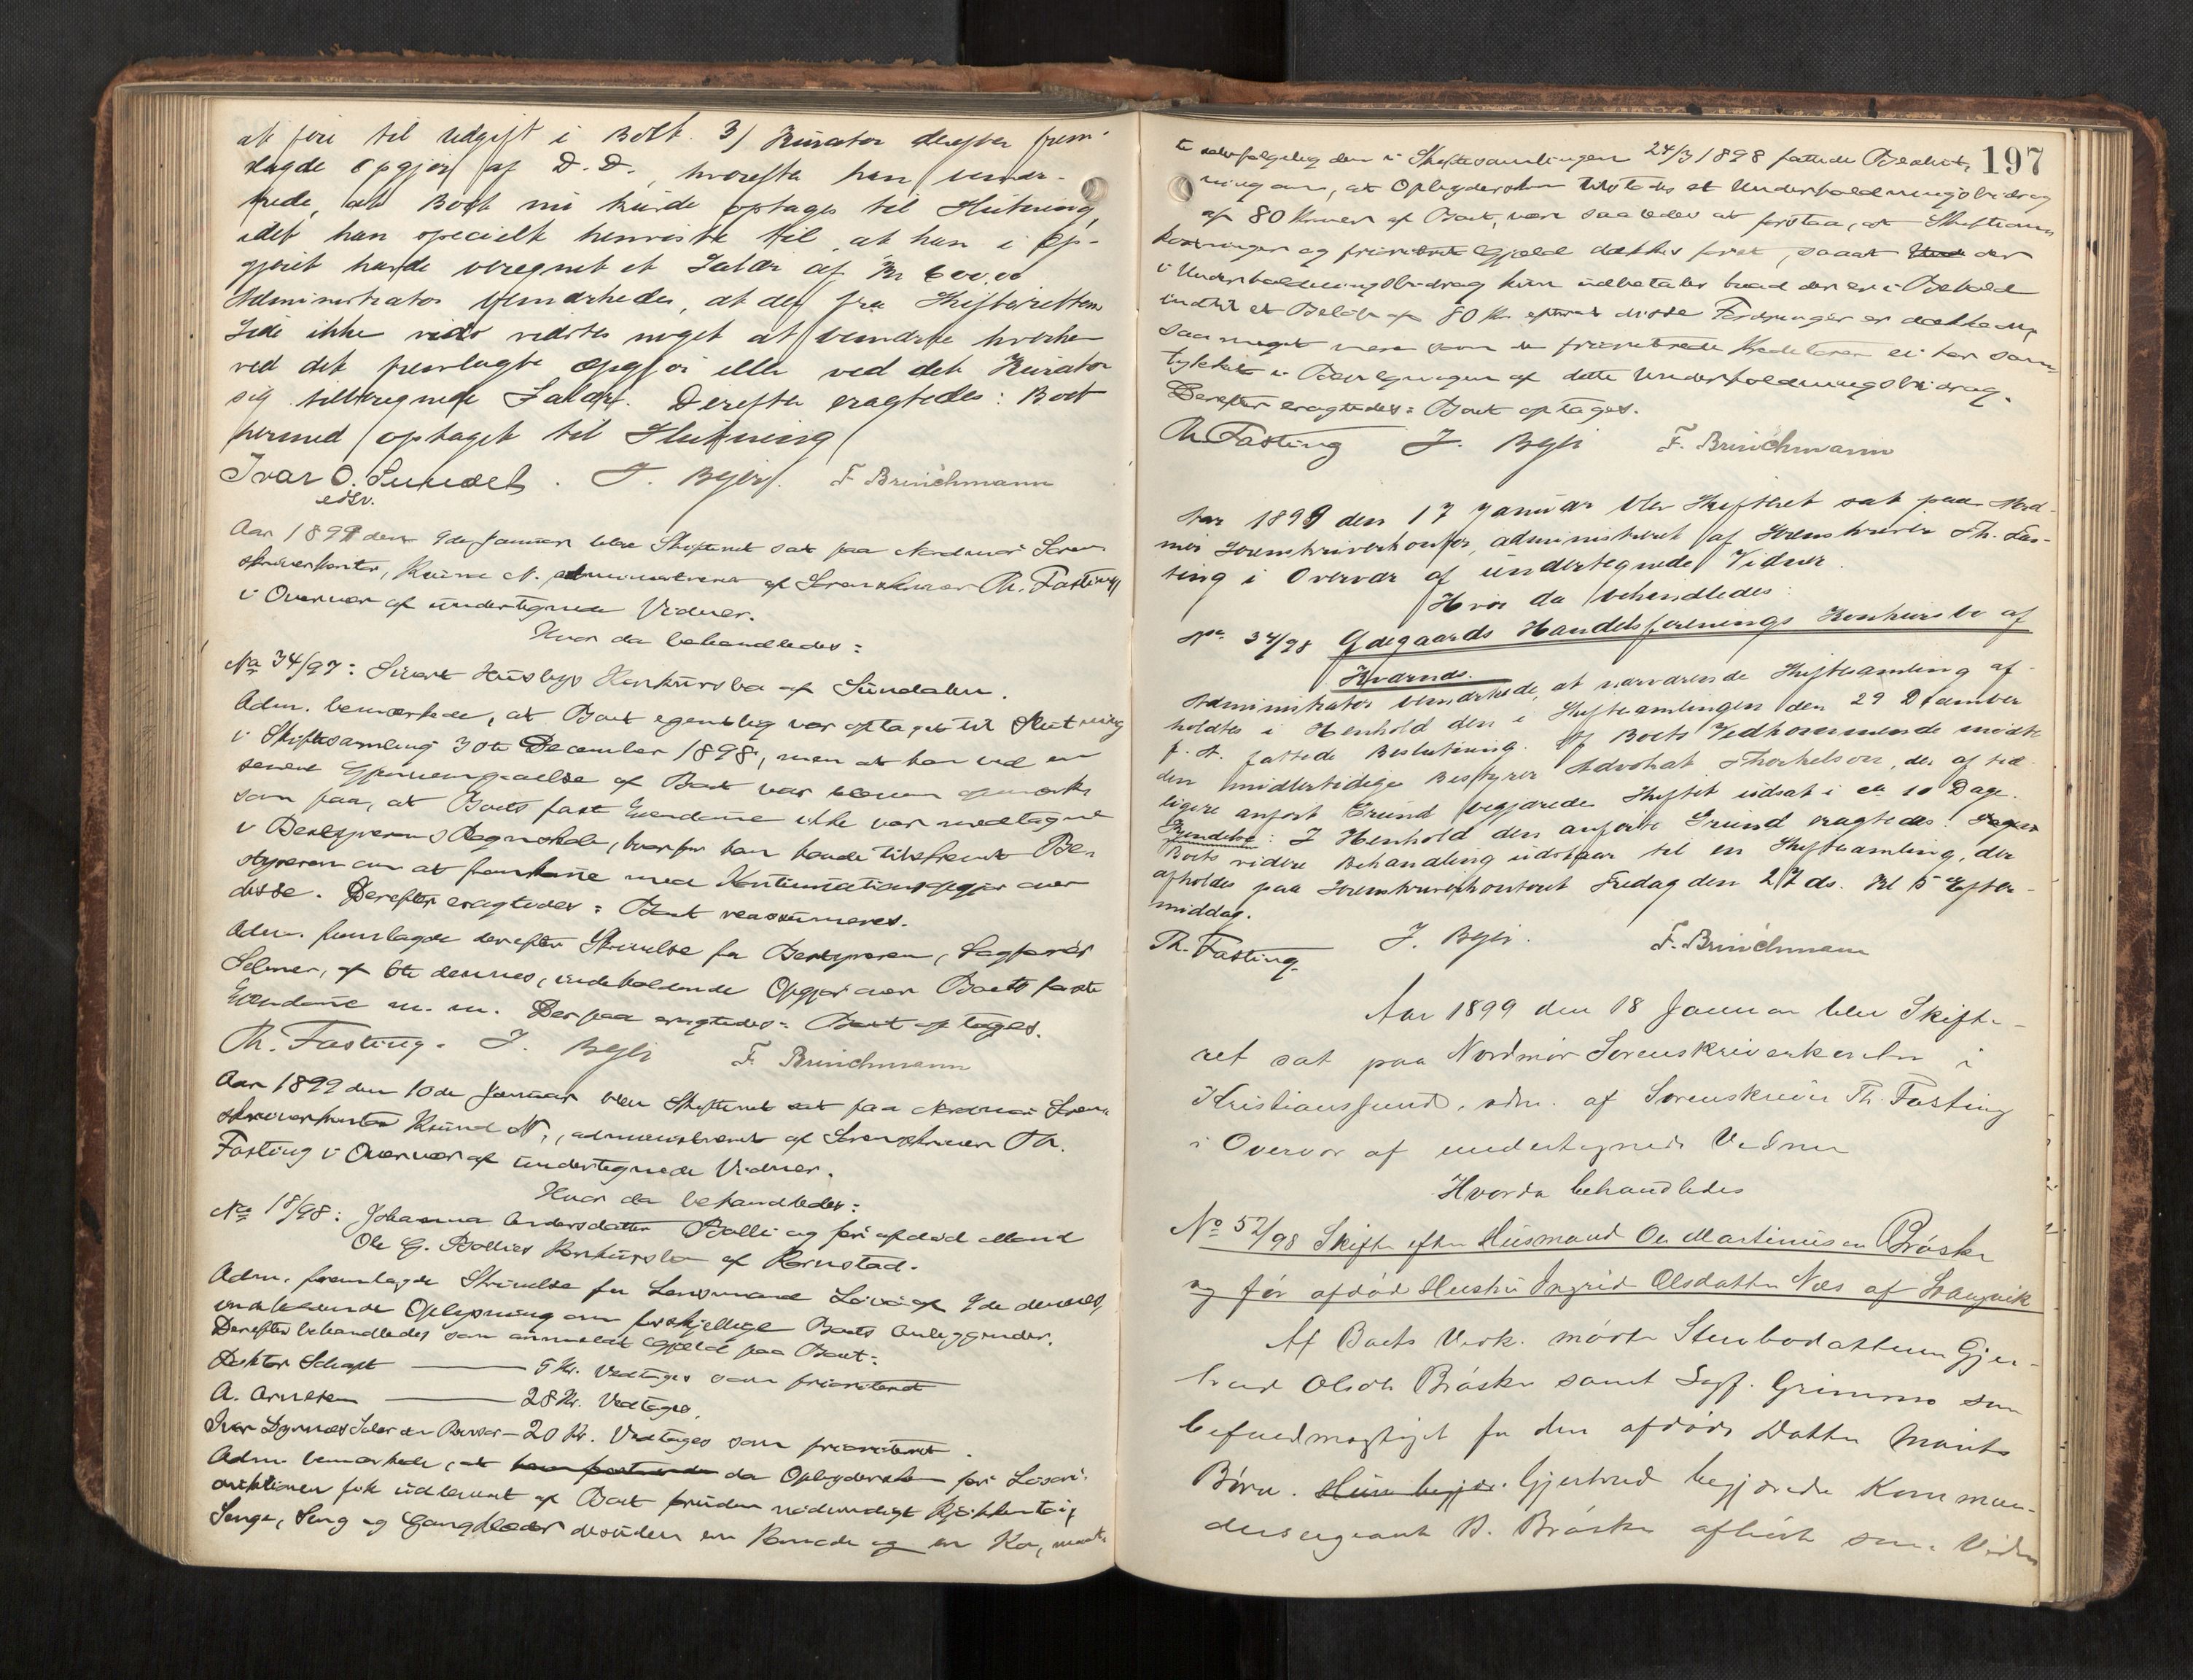 at føre til Udgift i Boet. 3) Kurator derefter frem-
lagde Opgjør af D.D., hvorefter han bemær-
kede, at Boet nu burde optages til Slutning,
idet han specielt henviste til, at han i Op-
gjøret havde beregnet et Salær af Kr 600,00
Administrator bemærkedes, at der fra Skifterettens
Side ikke vidstes noget at bemærke hverken
ved det fremlagte Opgjør eller ved det Kurator
sig tilberegnede Salær. Derefter eragtedes: Boet
hermed optaget til Slutning
Ivar O. Sundet. J. Byer. F Brinchmann
edsv.
Aar 1899 den 9de Januar blev Skifteret sat paa Nordmør Soren-
skriverkontor, Kr.sund N. administreret af Sorenskriver Th. Fasting
i Overvær af undertegnede Vidner.
Hvor da behandledes:
No 34/97: Sivert Husbys Konkursbo af Sundalen.
Adm. bemærkede, at Boet egentlig var optaget til Slutning
i Skiftesamling 30te December 1898, men at han ved en
senere Gjennemgaaelse af Boet var bleven opmærk-
som paa, at Boets faste Eiendomme ikke var medtagne
i Bestyrerens Regnskab, hvorfor han havde tilskrevet Be-
styreren om at fremkomme med Kontinuationsopgjør over
disse. Derefter eragtedes: Boet reassumeres.
Adm. fremlagde derefter Skrivelse fra Bestyreren, Sagfører
Selmer, af 6te dennes, indeholdende Opgjør over Boets faste
Eiendomme m. m. Derpaa eragtedes: Boet optages.
Th. Fasting. J. Byer F. Brinchmann
Aar 1899 den 10de Januar blev Skifteret sat paa Nordmør Soren-
skriverkontor Kr.sund N., administreret af Sorenskriver Th.
Fasting i Overvær af undertegnede Vidner.
Hvor da behandledes:
No 18/98: Johanna Andersdatter Bolli og før afdød Mand
Ole G. Bollies Konkursbo af Kornstad.
Adm. fremlagde Skrivelse fra Lensmand af 9de dennes,
indeholdende Oplysning om forskjellige Boets Anliggender.
Derefter behandledes som anmeldt Gjæld paa Boet:
Doktor Schapt — 5 Kr. Vedtages som prioriteret
A. Arnesen — 28 Kr. Vedtages.
Ivar Dyrnæs Salær — 20 Kr. Vedtages som prioriteret.
Adm. bemærkede, at da Opbydersken før Løsøre-
auktionen fik udleveret af Boet foruden nødvendigt Kjøkkentøi,
Senge, Seng og Gangklæder desuden en Komode og en Ko, maatte
197
selvfølgelig den i Skiftesamlingen 24/3 1898 fattede Beslut-
ning om, at Opbydersken tilstodes et Underholdningsbidrag
af 80 Kroner af Boet, være saaledes at forstaa, at Skifteom-
kostninger og prioriteret Gjæld dækkes først, saaat der
i Underholdningsbidrag kun udbetales hvad der er i Behold
indtil et Beløb af 80 Kr. efterat disse Fordringer er dækkede,
saa meget mere som de prioriterede Kreditorer ei har sam-
tykket i Bevilgningen af dette Underholdningsbidrag.
Derefter eragtedes: Boet optages.
Th. Fasting J. Byer F. Brinchmann
Aar 1899 den 17 Januar blev Skifteret sat paa Nord-
mør Sorenskriverkontor, administreret af Sorenskriver Th. Fas-
ting i Overvær af undertegnede Vidner.
Hvor da behandledes:
No. 34/98 Ødegaards Handelsforenings Konkursbo af
Kvernes.
Administrator bemærkede, at nærværende Skiftesamling af-
holdtes i Henhold den i Skiftesamlingen den 29 December
f. A. fattede Beslutning. Af Boets Vedkommende mødte
den midlertidige Bestyrer Advokat Thorkelson, der af tid-
ligere anført Grund begjærede Skiftet udsat i ca 10 Dage.
Kjendelse: I Henhold den anførte Grund eragtedes:
Boets videre Behandling udstaar til en Skiftesamling, der
afholdes paa Sorenskriverkontoret Fredag den 27 ds. Kl 5 Efter-
middag.
Th. Fasting. J. Byer. F. Brinchmann
Aar 1899 den 18 Januar blev Skifte-
ret sat paa Nordmør Sorenskriverkontor i
Kristianssund, adm. af Sorenskriver Th. Fasting
i Overvær af undertegnede Vidner
Hvorda behandledes
No 52/98 Skifte efter Husmand Ole Martinusen Bråsken
og før afdød Hustru Ingrid Olsdatter Næs af Stangvik
Af Boets Vedk. mødte Stervbodatteren Gjer-
trud Olsdtr Bråsken samt Sagf. Grimmo som
befuldmægtiget for den afdøde Datter Marits
Børn. Hun begjær. Gjertrud begjærede Komman-
dersergeant B. Bråsken afhørt som Vidne